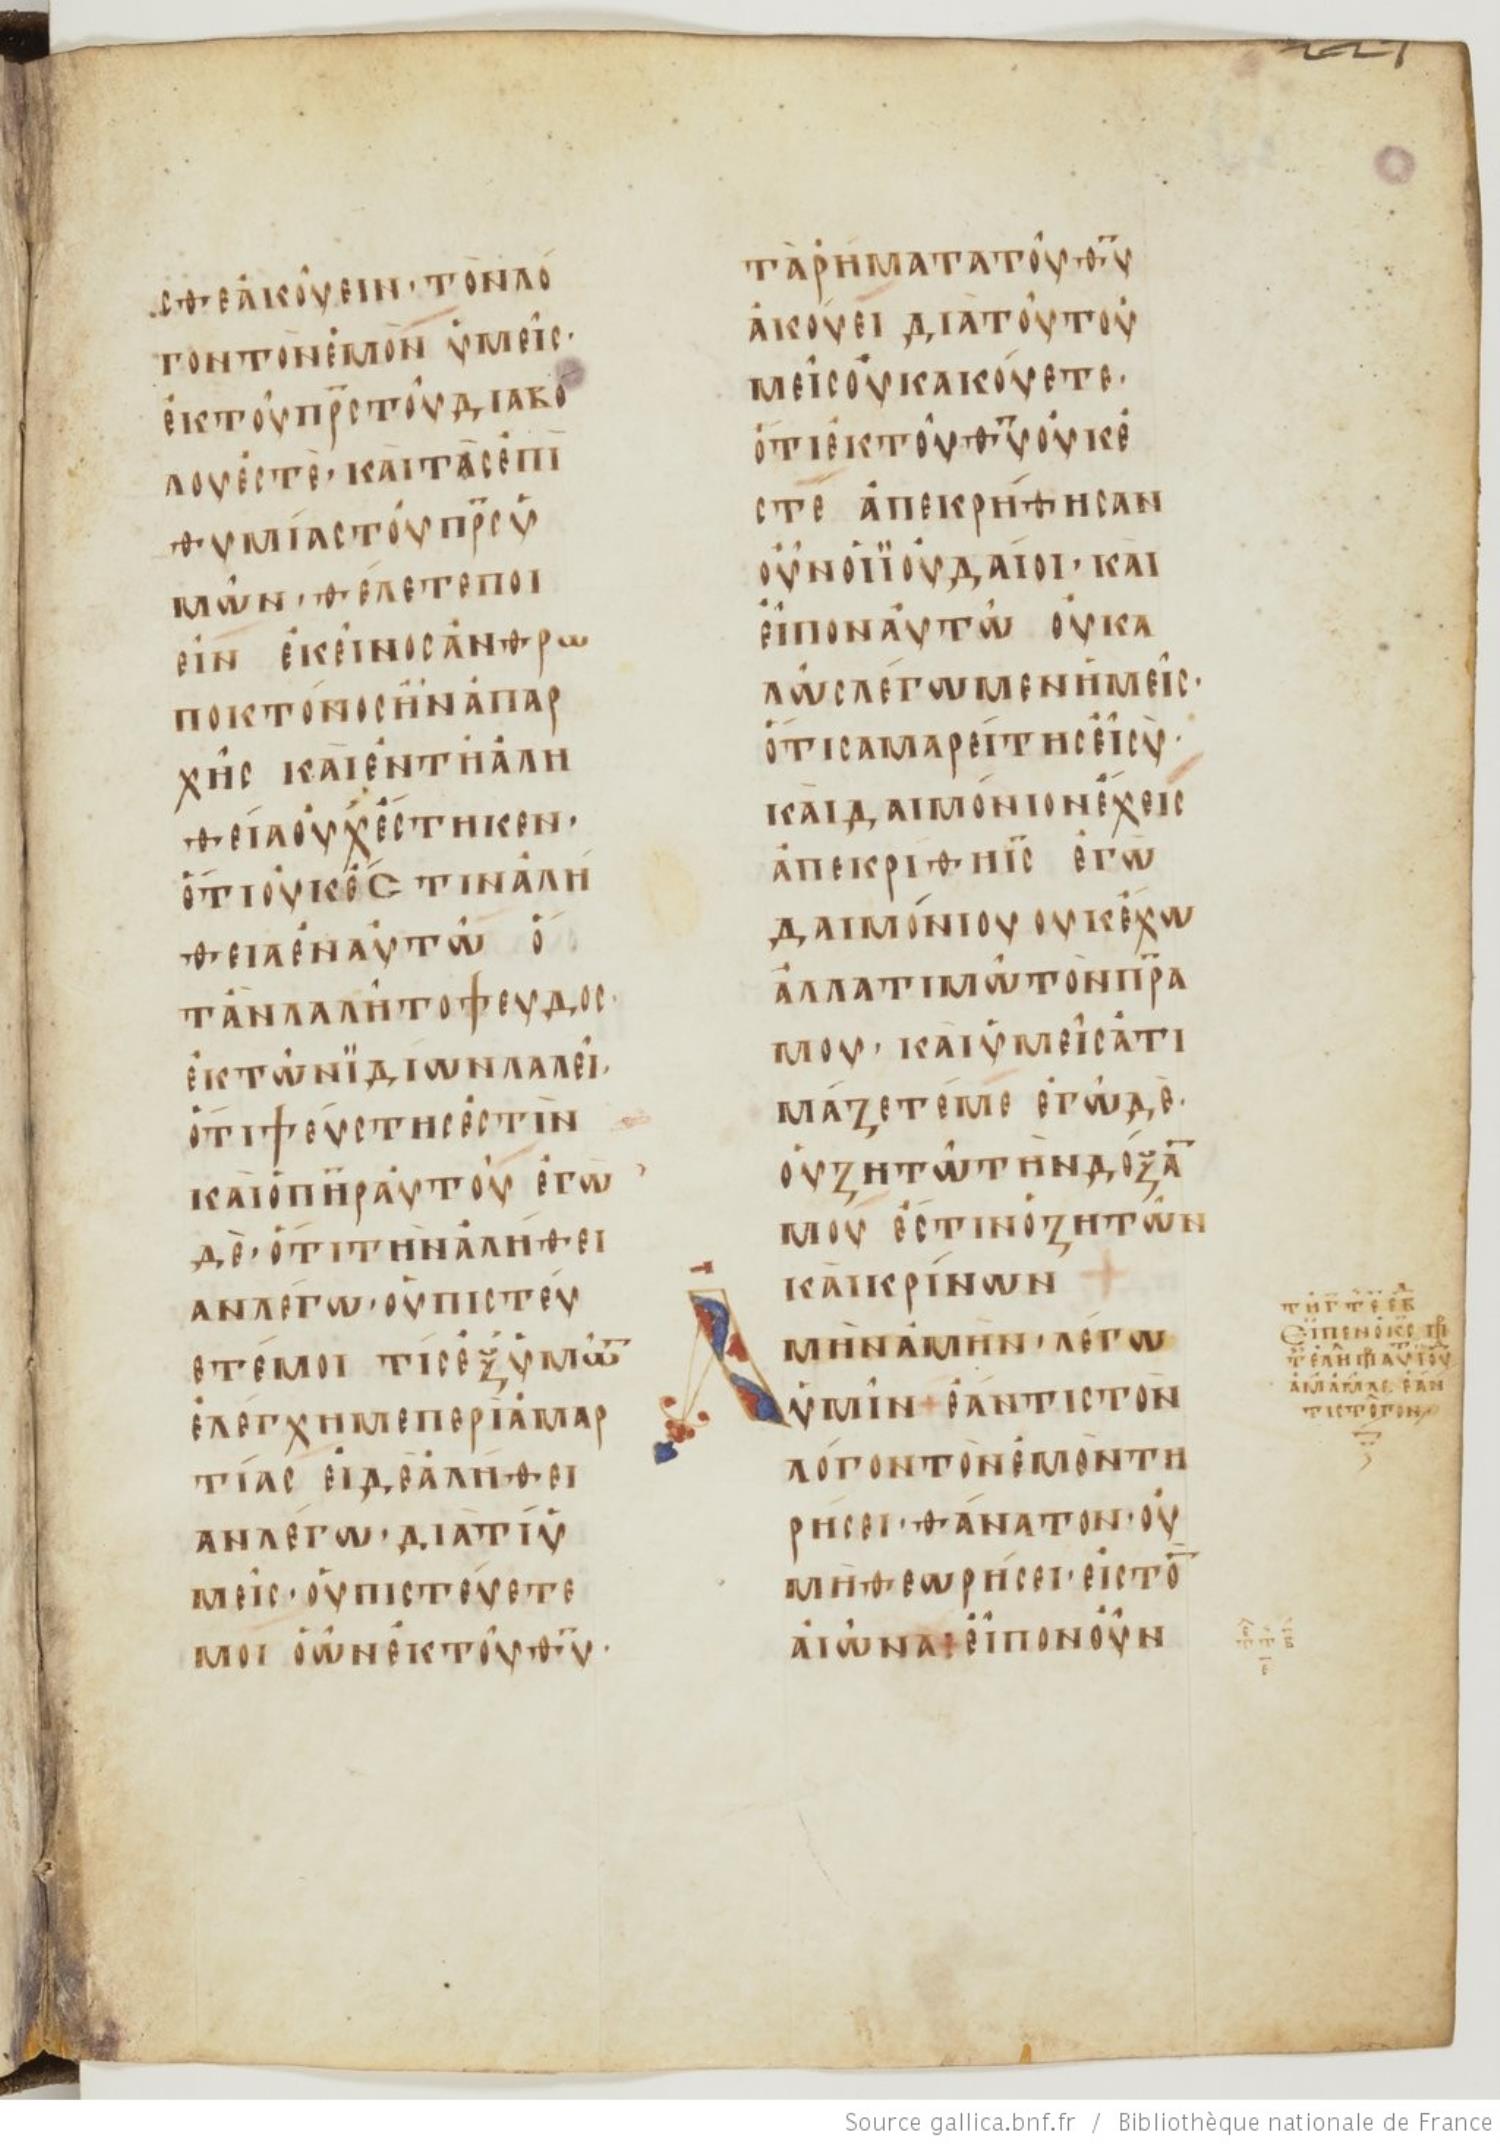 227
σθε ἀκούειν· τὸν λό
γον τὸν ἐμὸν ὑμεῖς·
ἐκ τοῦ πρ̅ς τοῦ διαβό
λου ἐστὲ· καὶ τὰς ἐπι
θυμίας τοῦ πρ̅ς ὑ
μῶν· θέλετε ποι
εῖν ἐκεῖνος ἀνθρω
ποκτόνος ἦν ἀπαρ
χῆς καὶ ἐν τῆ ἀλη
θεία οὐχ ἕστηκεν·
ὅτι οὐκ ἔστιν ἀλή
θεια ἐν αὐτῶ ὅ
τἂν λαλῆ τὸ ψευδος·
ἐκ τῶν ϊδίων λαλεῖ·
ὅτι ψεύστης ἐστὶν
καὶ ὁ πη̅ρ αὐτοῦ ἐγὼ
δὲ· ὅτι τὴν ἀλήθει
αν λέγω· οὐ πιστεύ
ετέ μοι τίς ἐξ ὑμῶ̅
ἐλέγχη με περὶ ἁμαρ
τίας εἰ δε ἀλήθει
αν λέγω· διατί ὑ
μεῖς· οὐ πιστεύετε
μοι ὁ ὢν ἐκ τοῦ θ̅υ·
τὰ ῥήματα τοῦ θ̅υ
ἀκούει διὰ τοῦτο ὑ
μεῖς οὐκ ἀκούετε·
ὅτι ἐκ τοῦ θ̅υ οὐκ ἐ
στέ ἀπεκρήθησαν
οὖν οἱ ϊουδαῖοι· καὶ
εἶπον αὐτῶ οὐ κα
λῶς λέγωμεν ἡμεῖς·
ὅτι σαμαρείτης εἶ σὺ·
καὶ δαιμόνιον ἔχεις
ἀπεκρίθη ι̅ς ἐγὼ
δαιμόνιον ουκ ἔχω
ἀλλα τιμῶ τὸν πρ̅α
μου· καὶ ὑμεῖς ἀτι
μάζετέ με ἐγὼ δὲ·
οὐ ζητῶ τὴν δόξα̅
μου ἔστιν ὁ ζητῶν
καὶ κρίνων
Ἀμὴν ἀμὴν· λέγω
ὑμῖν ἐάν τις τὸν
λόγον τὸν ἐμὸν τη
ρήσει· θάνατον· οὐ
μὴ θεωρήσει· εἰς τὸ̅
αἰῶνα: εἶπον οὖν